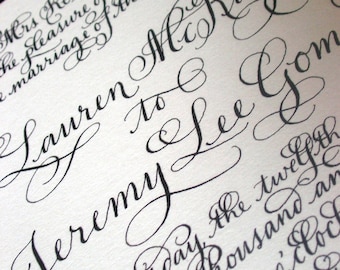 Mrs
the pleasure of
marriage of
Lauren
to
Jeremy Lee
day the twelfth
thousand
o'clock